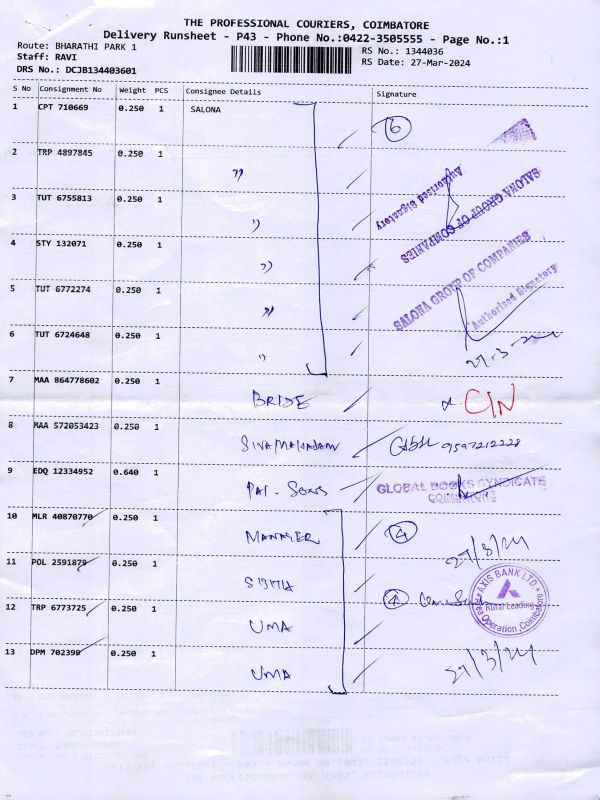 THE PROFESSIONAL COURIERS, COIMBATORE
Delivery Runsheet - P43 - Phone No.:0422-3505555 - Page No.:1
Route: BHARATHI PARK 1
Staff: RAVI
DRS No.: DCJB134403601
RS No.: 1344036
RS Date: 27-Mar-2024
S No Consignment No Weight PCS Consignee Details Signature
1 CPT 710669 0.250 1 SALONA 6
2 TRP 4897845 0.250 1 "
3 TUT 6755813 0.250 1 "
Authorised Signatory
SALONA GROUP OF COMPANIES
4 STY 132071 0.250 1 "
5 TUT 6772274 0.250 1 "
SALONA GROUP OF COMPANIES
Authorised Signatory
6 TUT 6724648 0.250 1 "
7 MAA 864778602 0.250 1 BRIDE CIN
8 MAA 572053423 0.250 1 9597212228
9 EDQ 12334952 0.640 1 PAI. SONS
GLOBAL BOOKS SYNDICATE
COIMBATORE
10 MLR 40870770 0.250 1 MANAGER 4
11 POL 2591879 0.250 1
AXIS BANK LTD
Rural Lending
12 TRP 6773725 0.250 1 UMA
13 DPM 702398 0.250 1 UMA
27/3/24